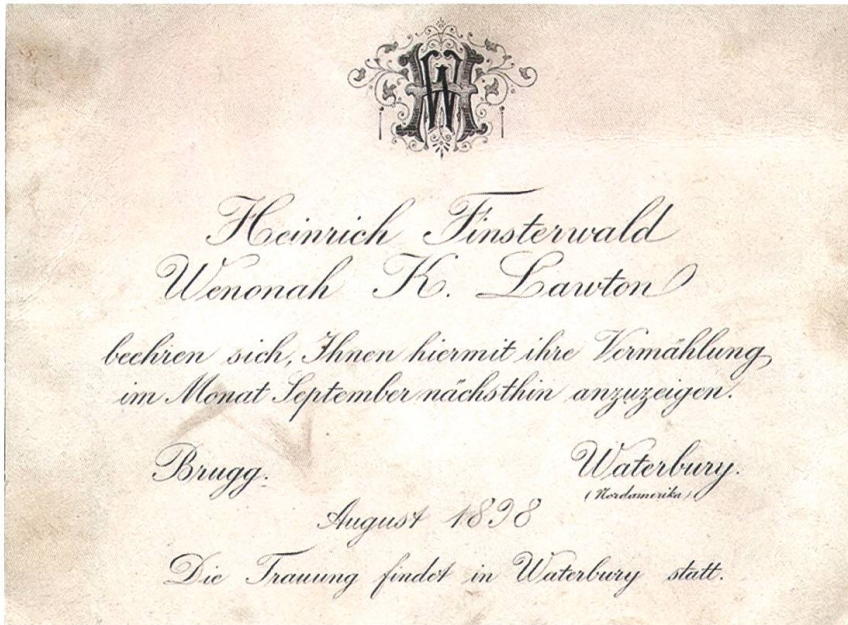 HW
Heinrich Finsterwald
Wenonah K. Lawton
beehren sich, Ihnen hiermit ihre Vermählung
im Monat September nächsthin anzuzeigen.
Brugg. Waterbury.
(Nordamerika)
August 1898
Die Trauung findet in Waterbury statt.